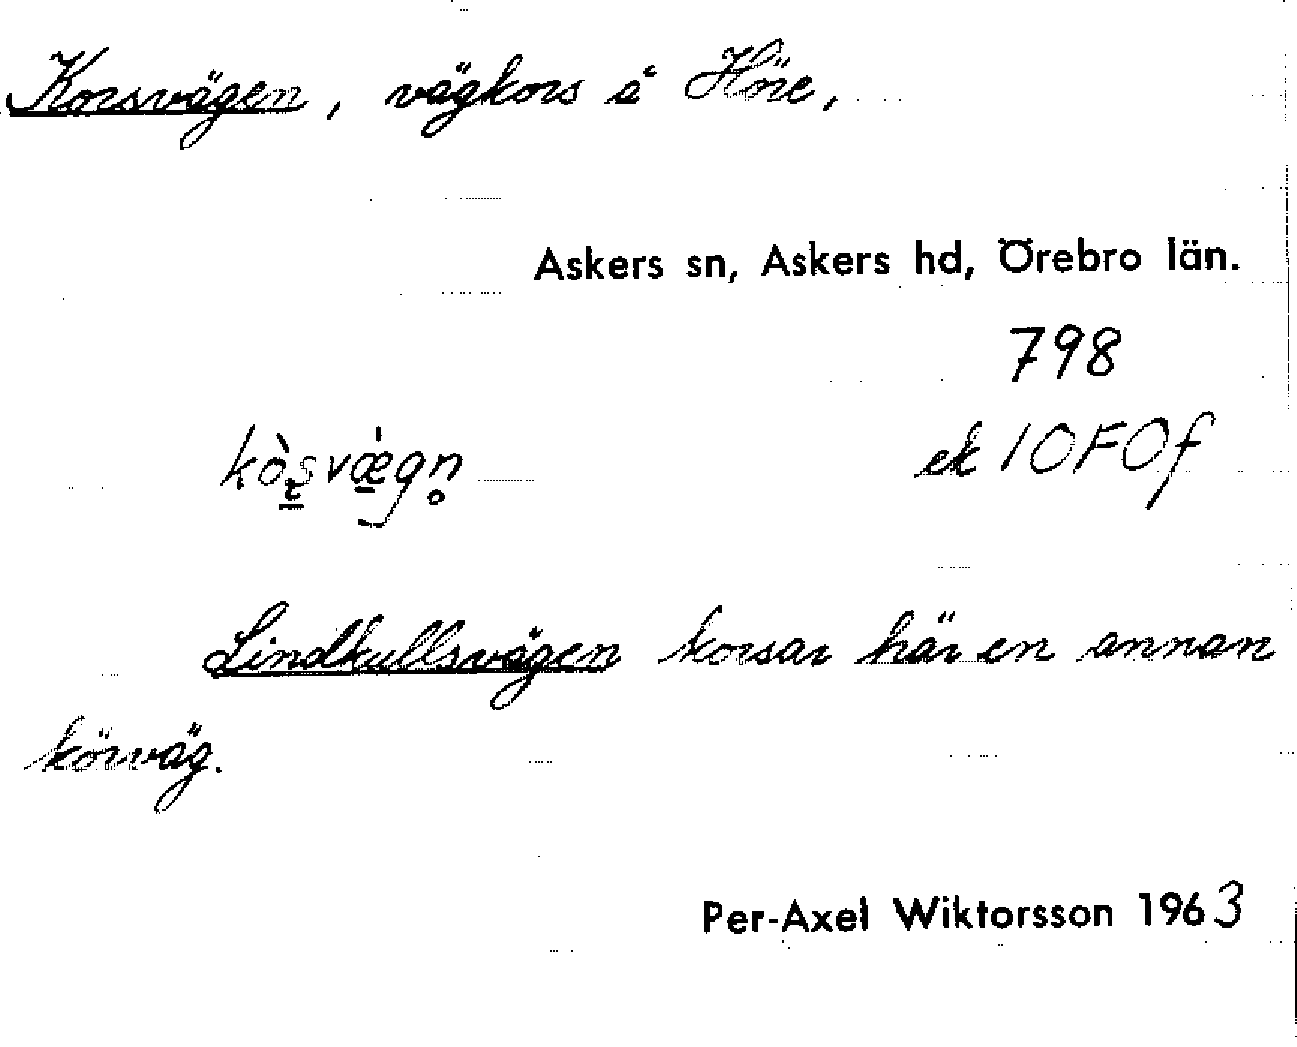 Korsvägen, vägkors å Höre,
Askers sn, Askers hd, Örebro län.
798
kòṣvǽgn̥
ek 10F0f
Lindkullsvägen korsar här en annan
körväg.
Per-Axel Wiktorsson 1963